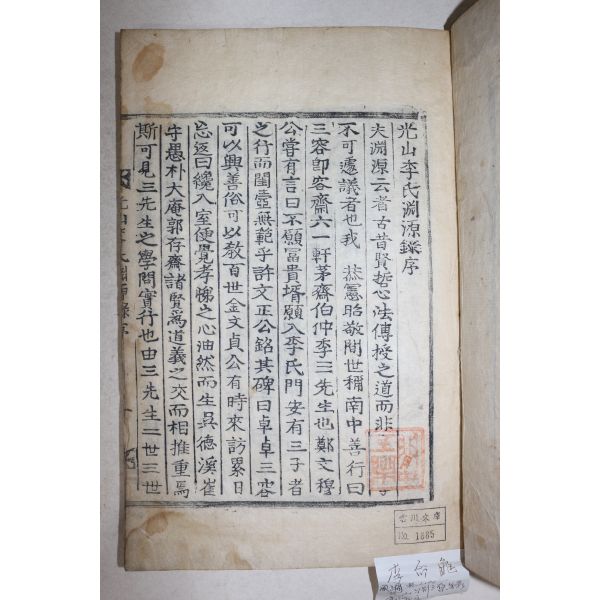 光山李氏淵源錄序
夫淵源云者古昔賢哲心法傳授之道而非
不可遽議者也我 恭憲昭敬間世稱南中善行曰
三容卽容齋六一軒茅齋伯仲李三先生也鄭文穆
公嘗有言曰不願冨貴壻願入李氏門安有三子者
之行而閨壼無範乎許文正公銘其碑曰卓卓三容
可以興善俗可以敎百世金文貞公有時來訪累日
忘返曰纔入室便覺孝悌之心油然而生吳德溪崔
守愚朴大庵郭存齋諸賢爲道義之交而相推重焉
斯可見三先生之學問實行也由三先生二世三世
光山李氏淵源錄序
雲川文庫
No. 1885
李命龜